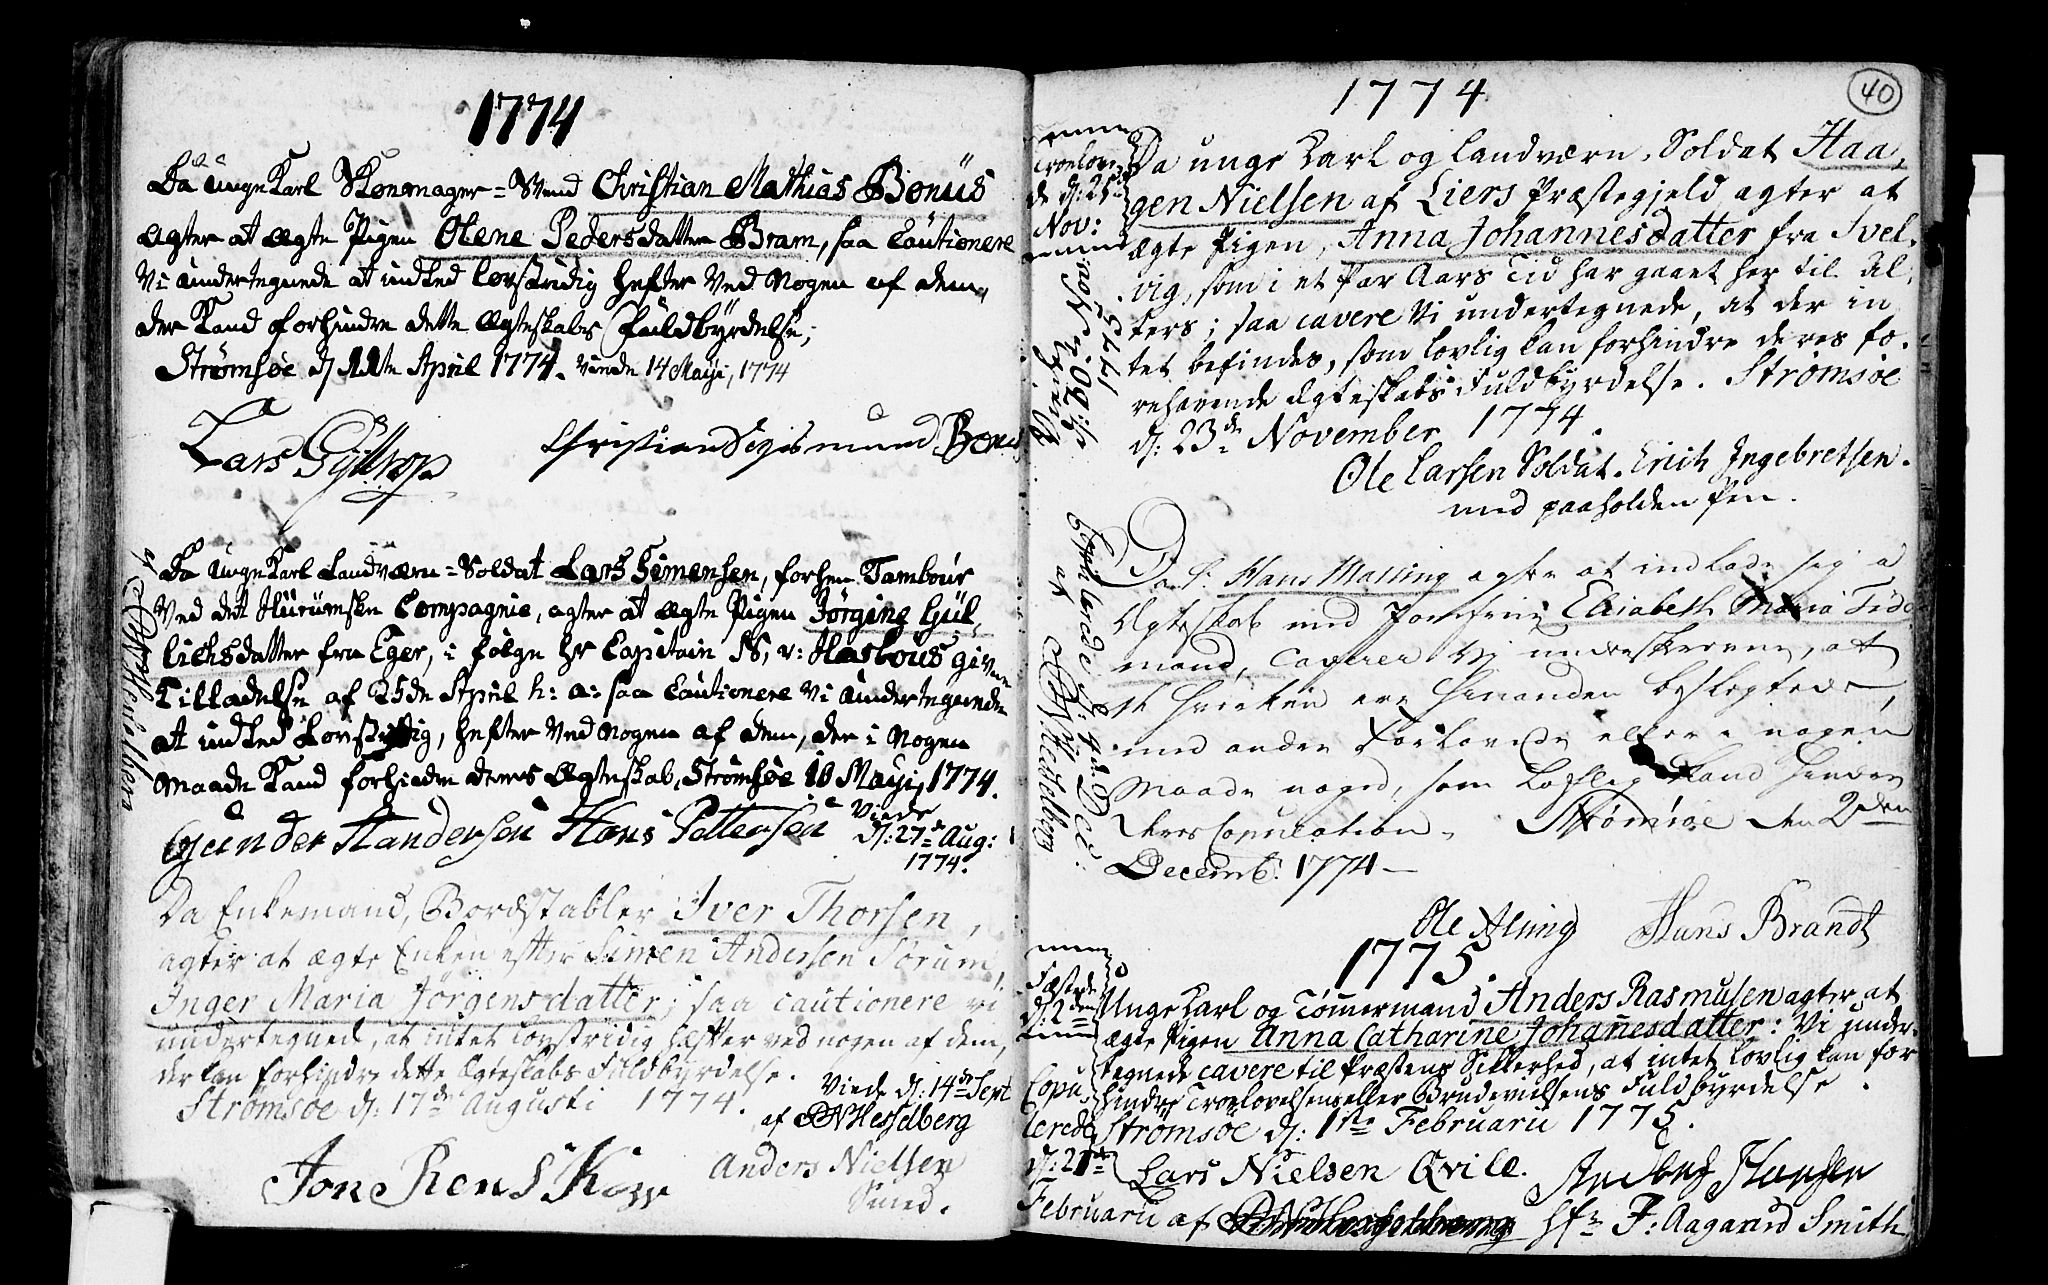 1774
Da Unge Karl Skomager=Svend Christian Mathias Bonüs
agter at ægte Pigen Olene Pedersdatter Bram, saa Cautionere
Vi undertegnede at intked lovstridig hefter ved Nogen af dem,
der Kand forhindre dette Ægteskabs Fuldbÿrdelse;
Strømsøe d 11te April 1774. Viede 14 Maÿi, 1774
Lars Gÿltrop Christian Sigismund Bonüs
Da Unge Karl Landværn=Soldat Lars Simensen, forhen Tambour
ved det Hurumske Compagnie, agter at ægte Pigen Jørgine Gul,
lichsdatter fra Eger, i følge Hr Capitain N, v: Hasbous given
Tilladelse af 25de April h: a: saa Cautionere Vi undertegnede
at intked Lovstridig, hefter ved Nogen af dem, der i Nogen
Maade Kand forhindre deres Ægteskab, Strømsøe 10 Maÿi, 1774.
Gunder Handersen Hans Pettersen
Viede
d: 27de Aug:
1774.
af Hesselberg
Da Enkemand, Bordstabler Iver Thorsen,
agter at ægte Enken efter Simen Andersen Sørum,
Inger Maria Jørgensdatter; saa cautionere vi
undertegnede, at intet lovstridig hefter ved nogen af dem,
der kan forhindre dette Ægteskabs Fuldbÿrdelse.
Strømsøe d: 17de Augusti 1774.
Viede d: 14de Sept
af Hesselberg
Jon Rens Kopp Anders Nielsen
Smed.
1774
40
Troelove-
de d: 25de
Nov:
Da unge Karl og Landværn-Soldat Haa,
gen Nielsen af Liers Præstegjeld agter at
ægte Pigen, Anna Johannesdatter fra Svel,
vig, som i et Par Aars Tid har gaaet her til Al,
ters; saa cavere Vi undertegnede, at der in
tet befindes, som lovlig kan forhindre deres fo,
rehavende Ægteskabs Fuldbÿrdelse. Strømsøe
d: 23de November 1774.
Ole Larsen Soldat. Erich Ingebretsen.
med paaholden Pen.
Da Sr: Hans Malling agter at indlade sig i
Ægteskab med Jomfrue Elisabeth Maria Tide
mand, Caverer Vi underskrevne, at
de hverken ere hinanden beslegtede,
med andre Forlovede eller i nogen
Maade noget, som lovlig Kand hindre
deres Copulation. Strømsøe den 2den
Decemb: 1774 —
Copulerede d: 9de Dec:
af Hesselberg
Ole Alsing Hans Brandt
1775.
Fæstede
d: 2den
Unge Karl og Tømmermand Anders Rasmusen agter at
ægte Pigen Anna Catharine Johanesdatter: Vi under-
tegnede cavere til Præstens Sikkerhed, at intet lovlig kan for
hindre Troelovelsens eller Brudevielsens Fuldbÿrdelse.
Strømsøe d: 1ste Februarii 1775.
Copu,
lerede
d: 21de
Februarii af
Lars Nielsen Qvile.
F: Aagaard Smith